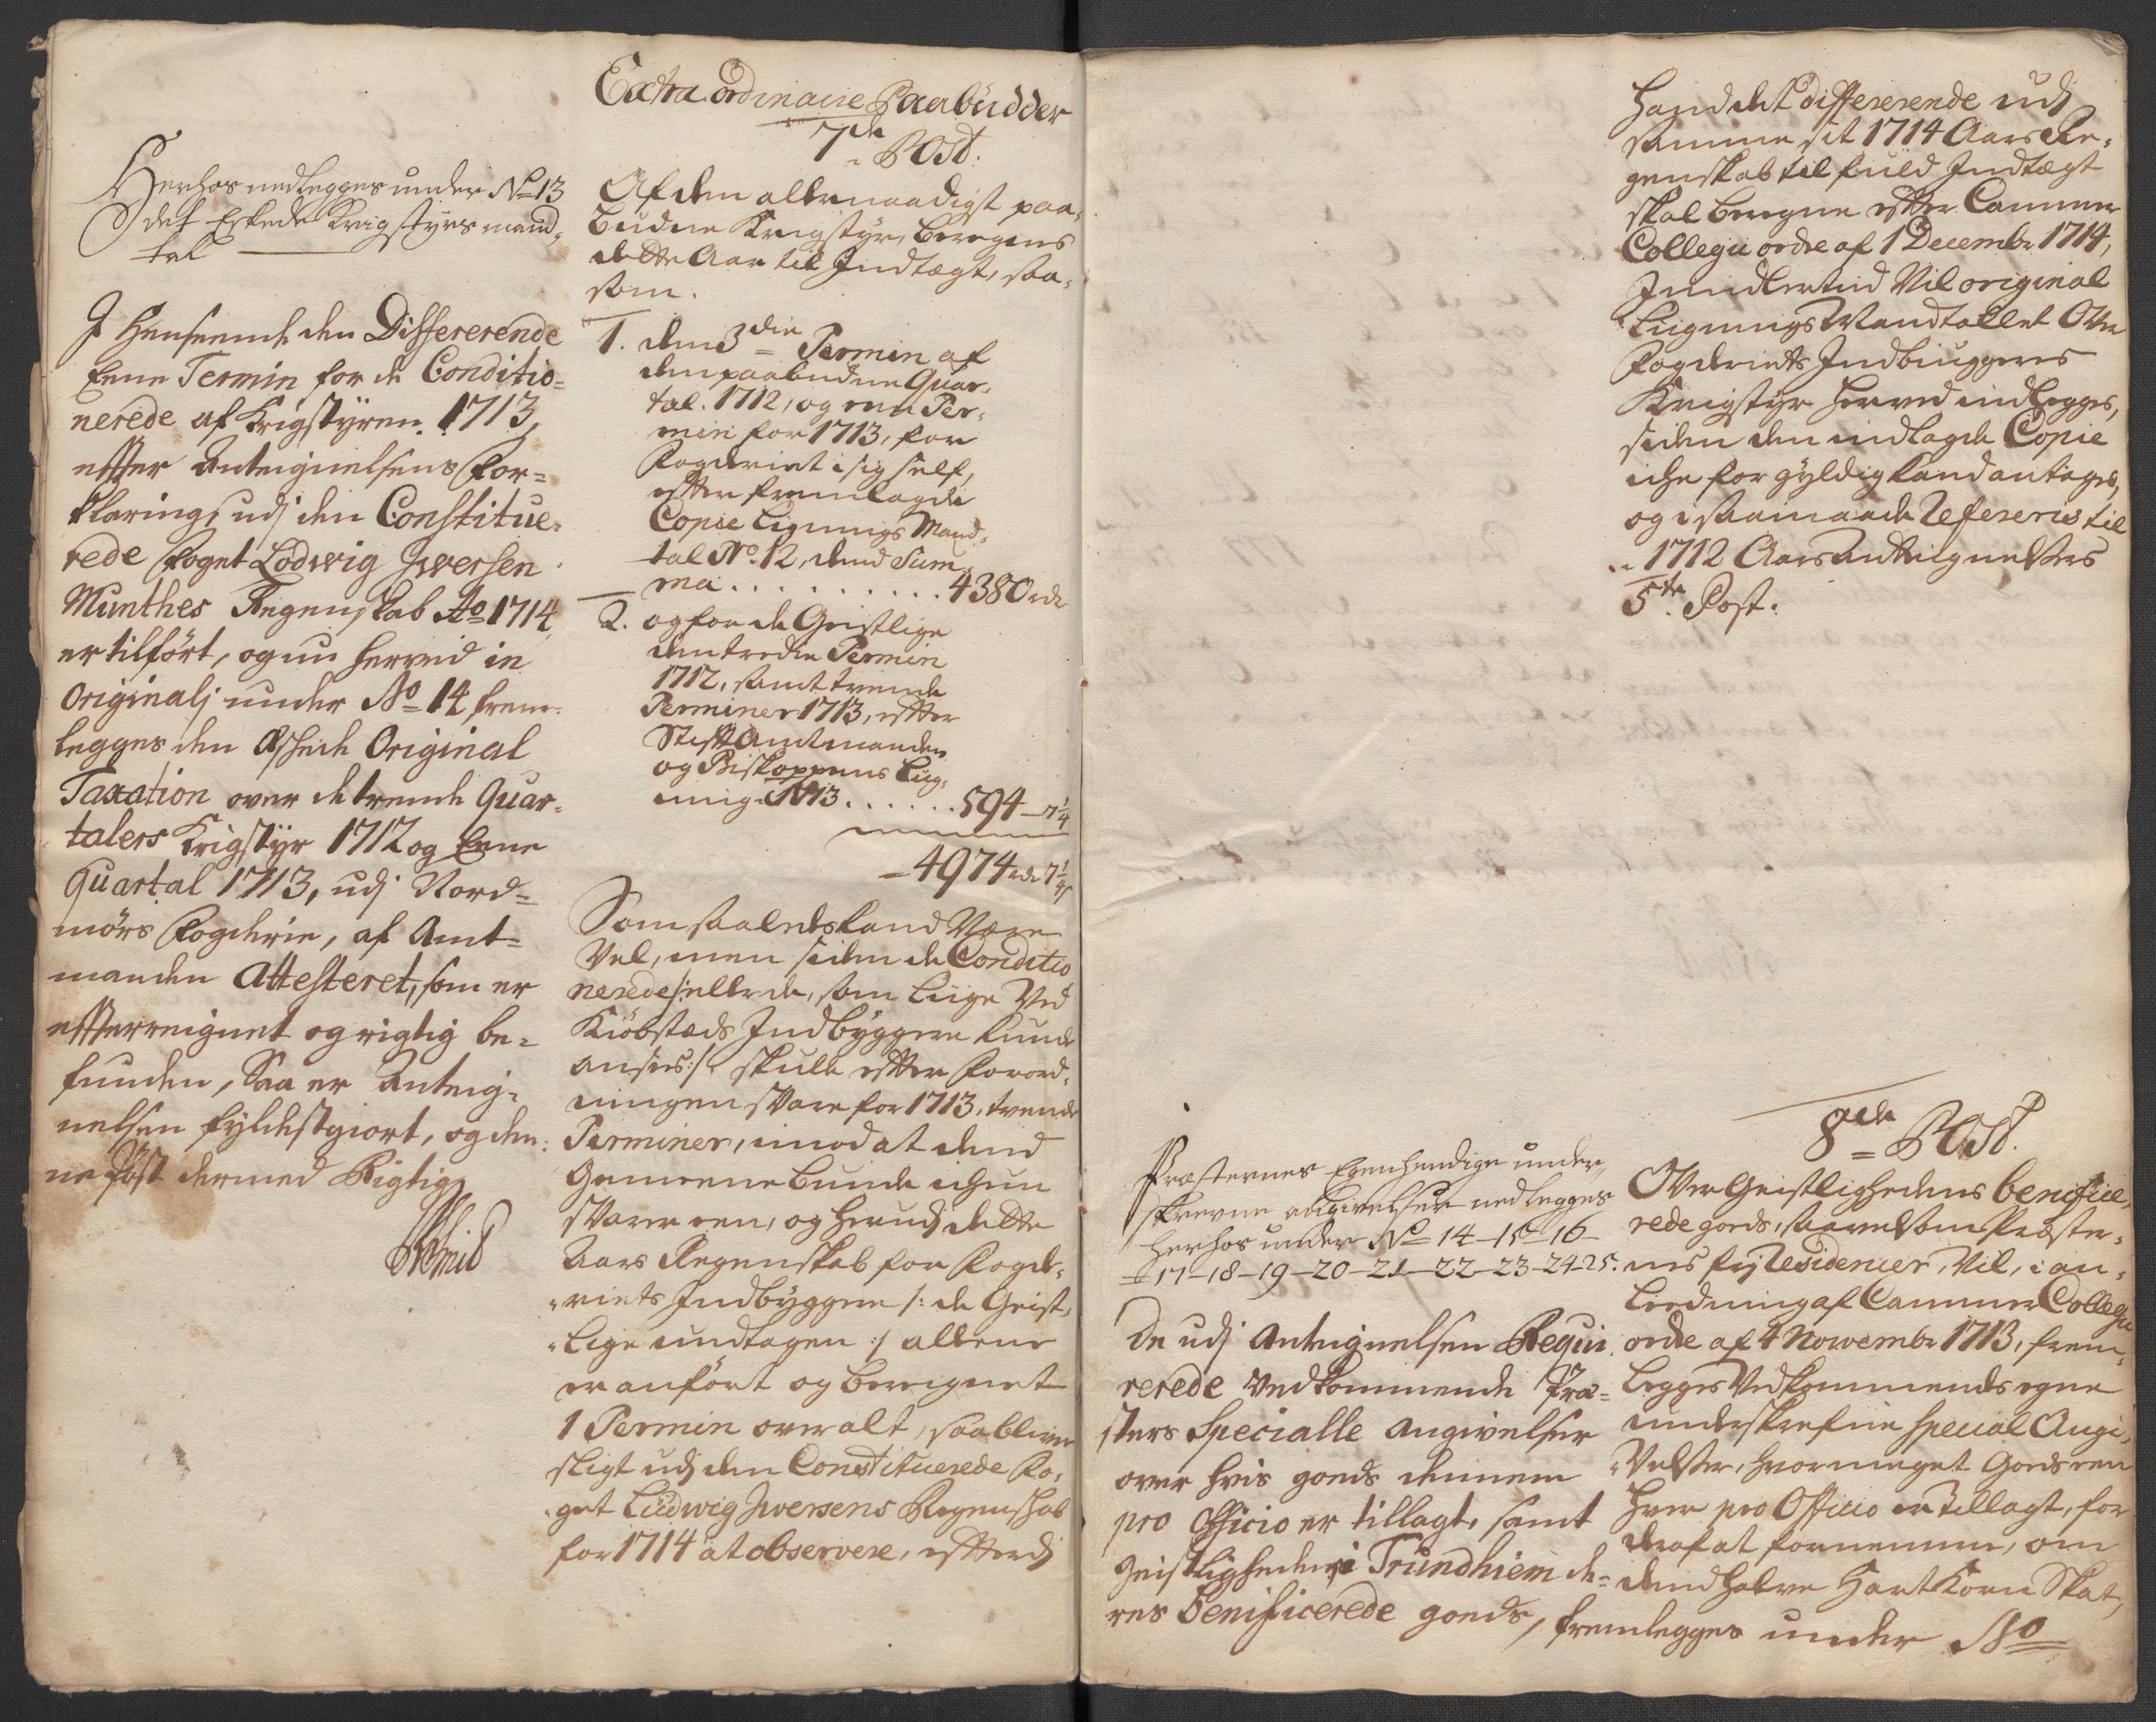 Extra ordinaire Paabudder
7de Post.
Herhos nedlegges under No 13
det Eskede Krigstyrs mand-
tal
I henseende den Differerende
Eene Termin for de Conditio=
nerede af Krigstyren 1713,
efter Antegnelsens For=
klaring, udj den Constitue=
rede Foget Lodwig Iwersen
Munthes Regenskab Ao 1714
er tilført, og nu herved in
Originalj under No 14 frem=
legges den Original
Taxation over de trende Quar=
talers Krigstyr 1712 og Eene
Quartal 1713, udj Nord=
mørs Fogderie, af Amt=
manden Attesteret, som er
effterreignet og rigtig be=
funden, Saa er Anteig=
nelsen fyldestgiort, og den=
ne Post dermed Rigtig
Af den allernaadigst paa-
budne Krigstyr, beregnes
dette Aar til Indtægt, saa-
som.
1. den 3die Termin af
den paabudne Quar-
tal. 1712, og een Ter-
min for 1713, for
Fogderiet i sig self,
efter fremlagde
Copie Lignings Mand-
tal No. 12, dend Sum-
ma . . . . . . . . . . 4380 rdr
2. og for de Geistlige
den tredie Termin
1712, samt trende
Terminer 1713, efter
Stifft Amtmanden
og Biskoppens Lig-
ning No 13 . . . . . . 594 - 7 1/4
- 4974 rdr 7 1/4 s
Som saaledes kand Være
Vel, men siden de Conditio
nerede /: eller de, som liige Ved
Kiøbstæds Indbyggere kunde
ansees :/ skulle efter Forord-
ningen svare for 1713, trende
Terminer, imod at dend
Gemeene bunde ichun
svarer een, og herudj dette
Aars Regenskab for Fogde-
riets Indbyggere /: de Geist-
lige undtagen :/ allene
er anført og beregnet
1 Termin over alt, saa bliver
sligt udj den Constituerede Fo-
get Ludwig Iwersens Regenskab
for 1714 at observere, efterdj
hand det differerende udj
samme sit 1714 Aars Re-
genskab til fuld Indtægt
skal beregne efter Cammer
Collegii ordre af 1 Decembr 1714,
Imidlertid Vil original
Lignings Mandtallet Over
Fogderiets Indbiuggeres
Krigstyr herved indlegges,
siden den indlagde Copie
iche for gyldig kand antages,
og i saamaade Refereris til
1712 Aars Antegnelses
5te Post.
8de Post.
Præsternes Egenhendige under
skrevne angivelser nedlegges
herhos under No 14 - 15 - 16 -
17 - 18 - 19 - 20 - 21 - 22 - 23 - 24 - 25.
De udj Antegnelsen Requi
rerede vedkommende Præ=
sters Specialle angivelser
over hvis goeds dennem
pro Officio er tillagt, samt
Geistligheden i Trundhiem de=
res benificerede goeds, fremlegges under No
Over Geistlighedens benefice-
rede gods, saavelsom Præster-
nes fri Residencer, Vil, i an-
leedning af Cammer Collegii
ordre af 4 Novembr 1713, frem-
legges Vedkommendes egne
underskrefne Special Angi-
Velser, hvor meget Gods een
hver pro Officio er tillagt, for
deraf at fornemme, om
dend halve Hart Korn Skat,